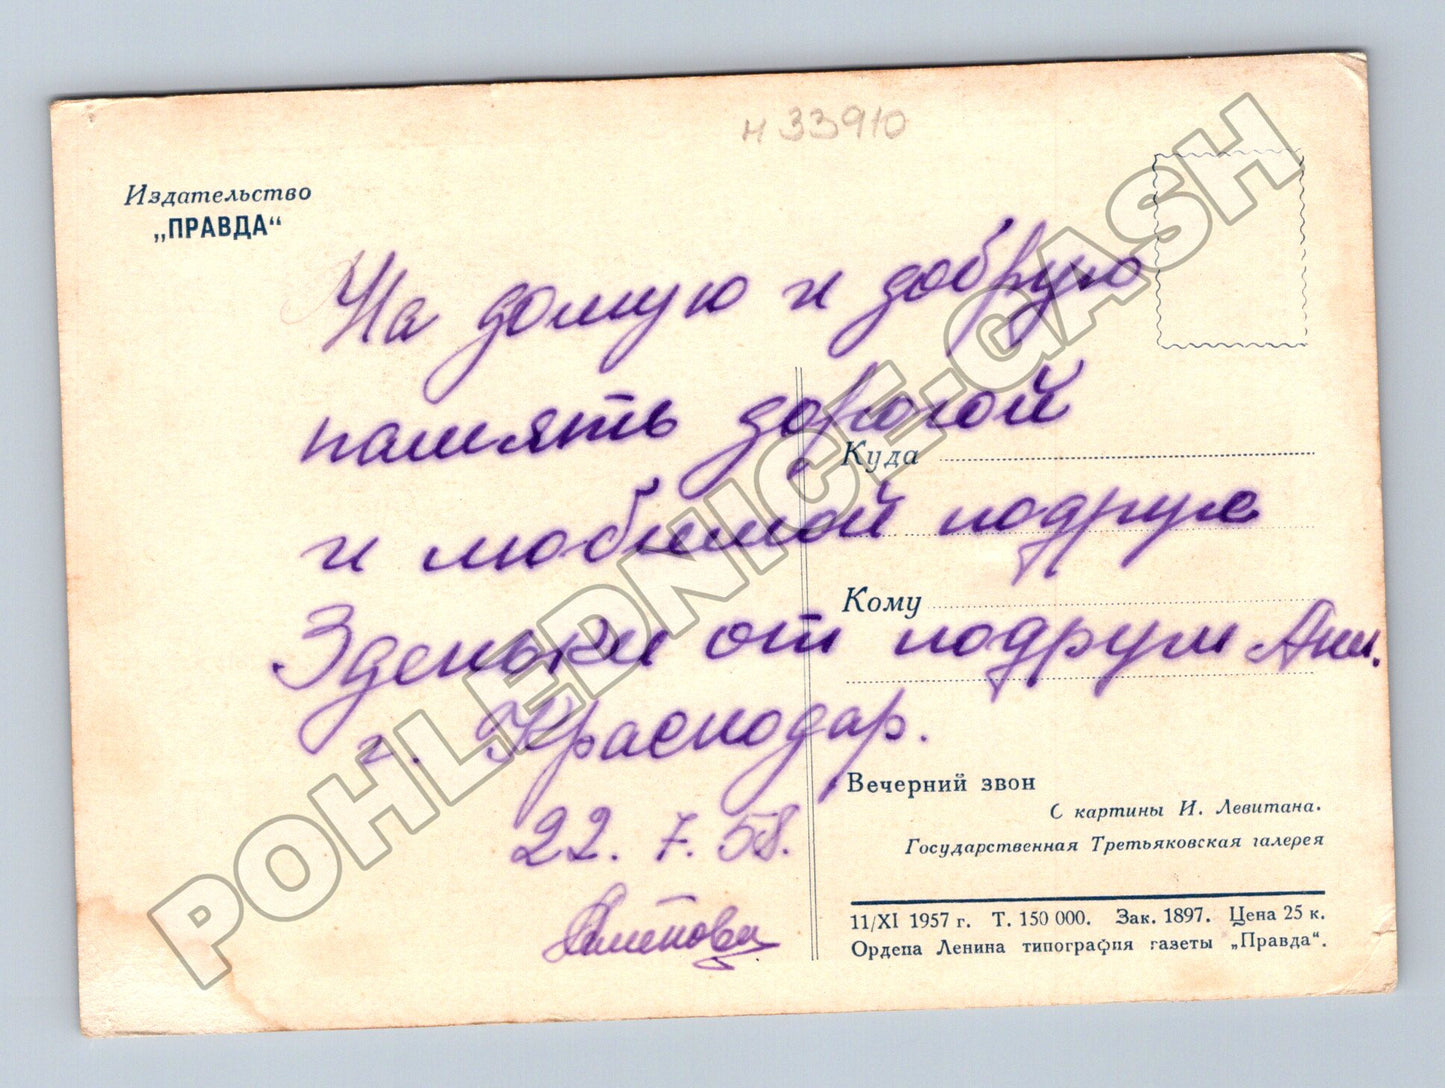 н 33910
Издательство
„ПРАВДА“
На домую и добрую
память дорогой
и любимой подруге
Зденьки от подруги Ани.
г. Краснодар.
22. 7. 58.
Куда
Кому
Вечерний звон
С картины И. Левитана.
Государственная Третьяковская галерея
11/XI 1957 г. Т. 150 000. Зак. 1897. Цена 25 к.
Ордена Ленина типография газеты „Правда“.
POHLEDNICE.GASH